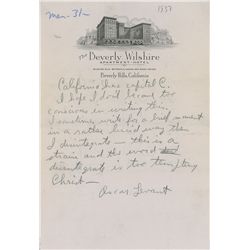 Mar - 3/2
1937
The Beverly Wilshire
APARTMENT-HOTEL
Beverly Hills, California
California has capital C.
I hope I don't become too
conscious in writing this.
I sometimes write for a brief moment
in a rather lucid way then
I disintegrate — this is a
strain and the word
disintegrate is too tempting
Christ —
Oscar Levant